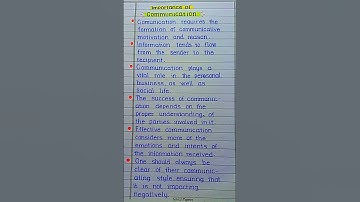 Importance of
Communication
Comunication requires the
formation of communicative
motivation and reason.
Information tends to flow
from the sender to the
recipient.
Communication plays a
vital role in the personal,
business as well as
social life.
The success of communic-
ation depends on the
proper understanding of
the parties involved in it.
Effective communication
considers more of the
emotions and intents of
the information received.
One should always be
clear of their communic-
ating style ensuring that
it is not impacting
negatively.